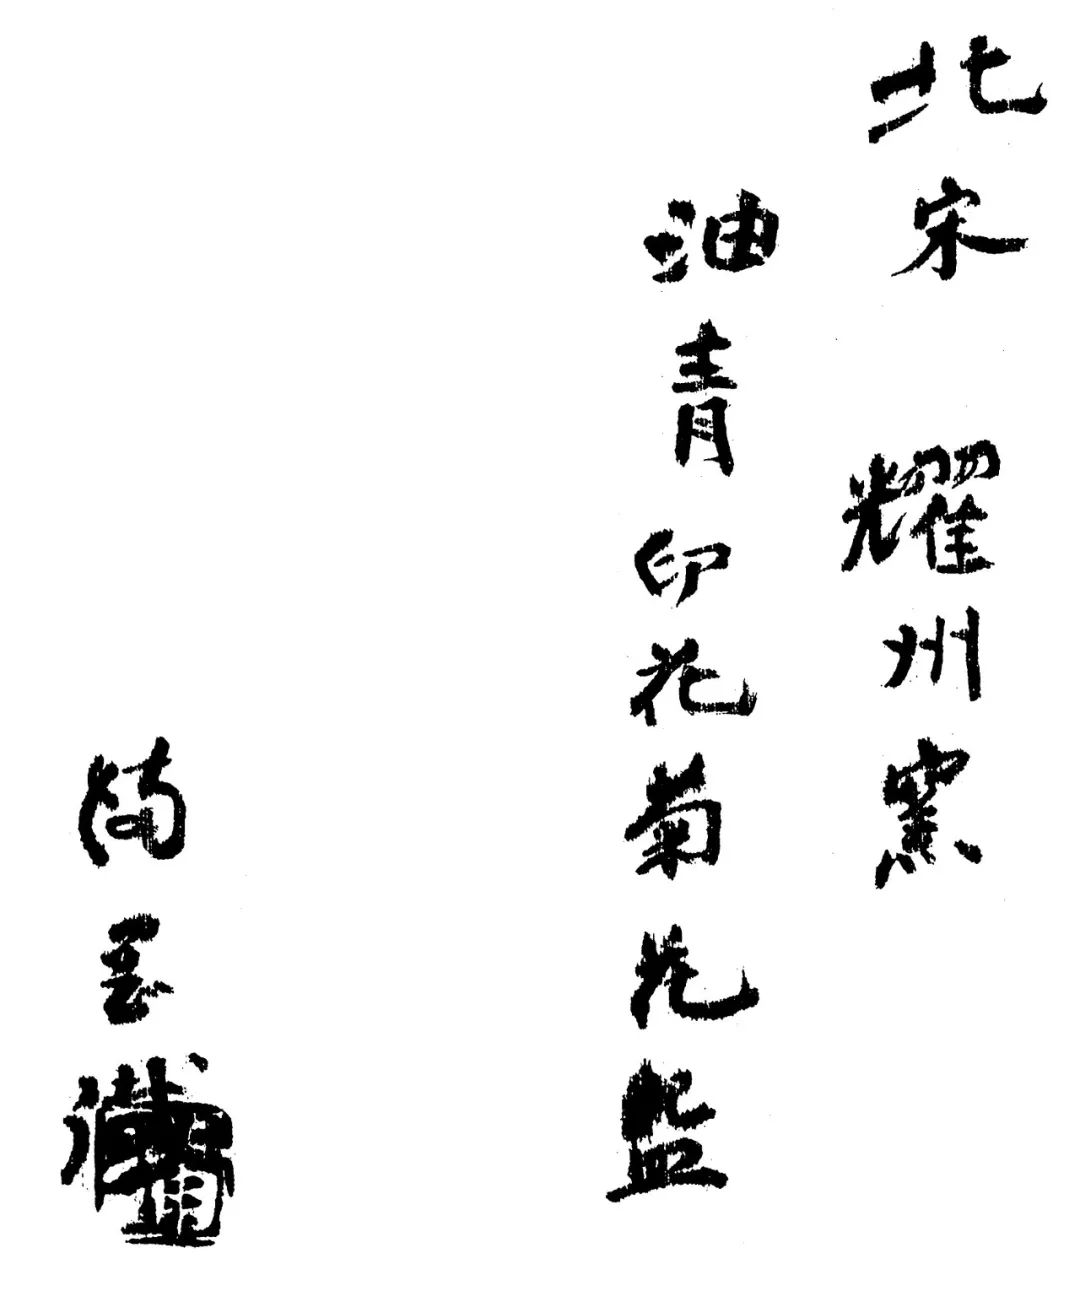 北宋 耀州窯
油青印花菊花盌